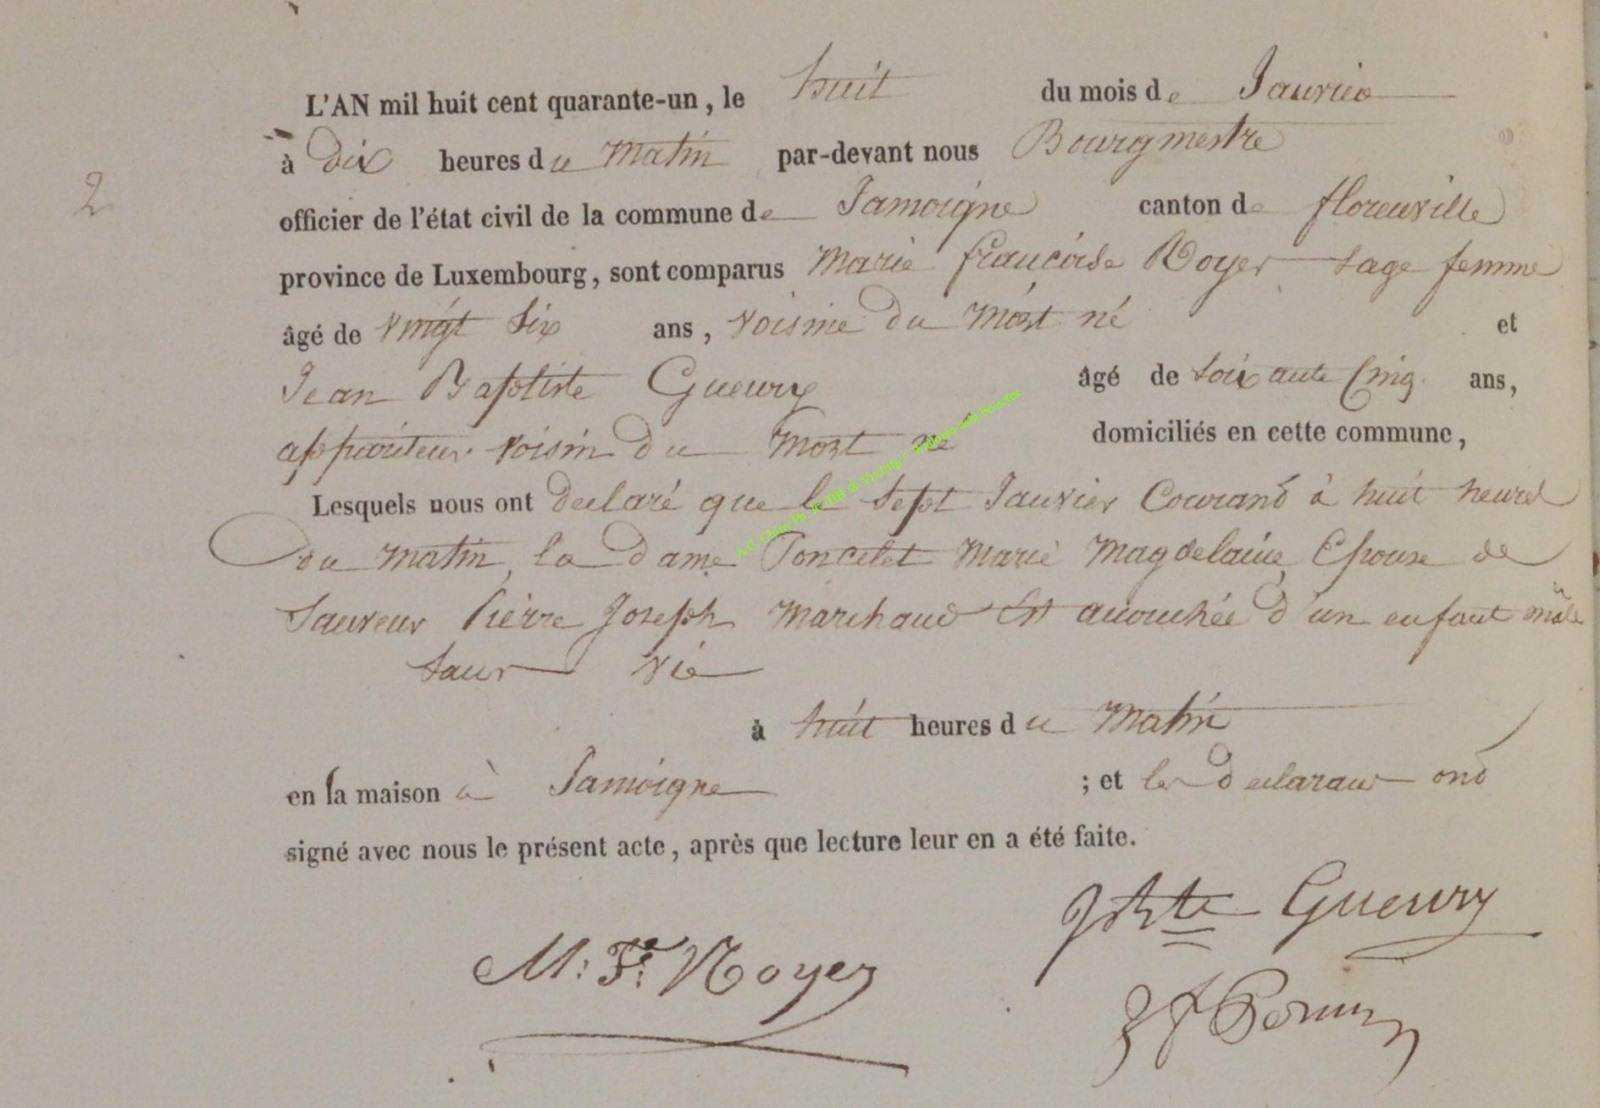 L'AN mil huit cent quarante-un, le huit du mois de Janvier
à Dix heures du Matin par-devant nous Bourgmestre
2
officier de l'état civil de la commune de Jamoigne canton de florenville
province de Luxembourg, sont comparus Marie francoise Noyer sage femme
âgé de vingt Six ans, voisine du Mort né et
Jean Baptiste Gueury âgé de soixante Cinq ans,
appariteur voisin du Mort né domiciliés en cette commune,
Lesquels nous ont declaré que le Sept Janvier Courand à huit heures
du matin, la dame Poncelet Marie Magdelaine Epouse de
Sauveur Pierre Joseph Marchand Est accouchée d'un enfant mâle
sans vie
à huit heures du Matin
en la maison à Jamoigne ; et les declarans ond
signé avec nous le présent acte, après que lecture leur en a été faite.
JBte Gueury
M: Fse Noyer